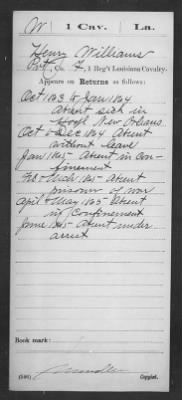 W | 1 Cav. | La.
Henry Williams
Pvt, Co. F, 1 Reg't Louisiana Cavalry.
Appears on Returns as follows:
Oct 1863 to Jan 1864
Absent sick in
Hospl New Orleans.
Oct to Dec 1864 Absent
without leave
Jan 1865 - Absent in Con-
finement
Feb & Mch 1865 - Absent
prisoner of war
April & May 1865 Absent
in Confinement
June 1865 - Absent under
arrest
Book mark:
(546) Copyist.